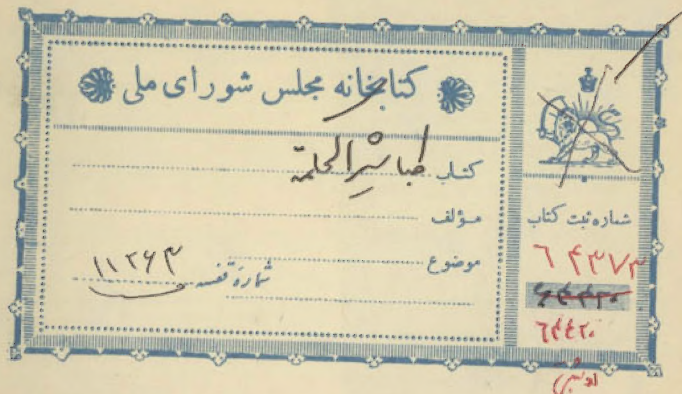 کتابخانه مجلس شورای ملی
کتاب طباشیر الحکمة
مؤلف
موضوع
شماره قفسه ۱۱۲۶۳
شماره ثبت کتاب
۶۴۳۷۳
۶۴۴۲۰